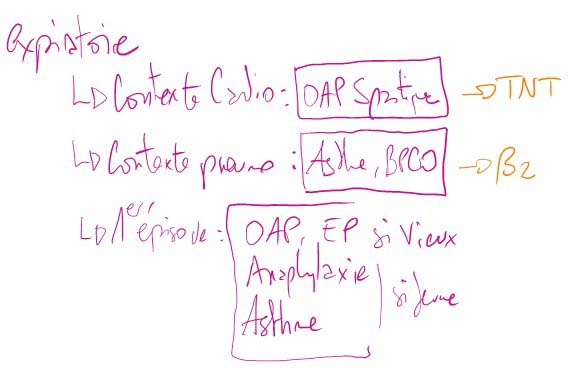 expiratoire
↳ Contexte Cardio : OAP Spastique → TNT
↳ Contexte pneumo : Asthme, BPCO → β2
↳ 1er épisode : OAP, EP si Vieux
Anaphylaxie
Asthme
si jeune